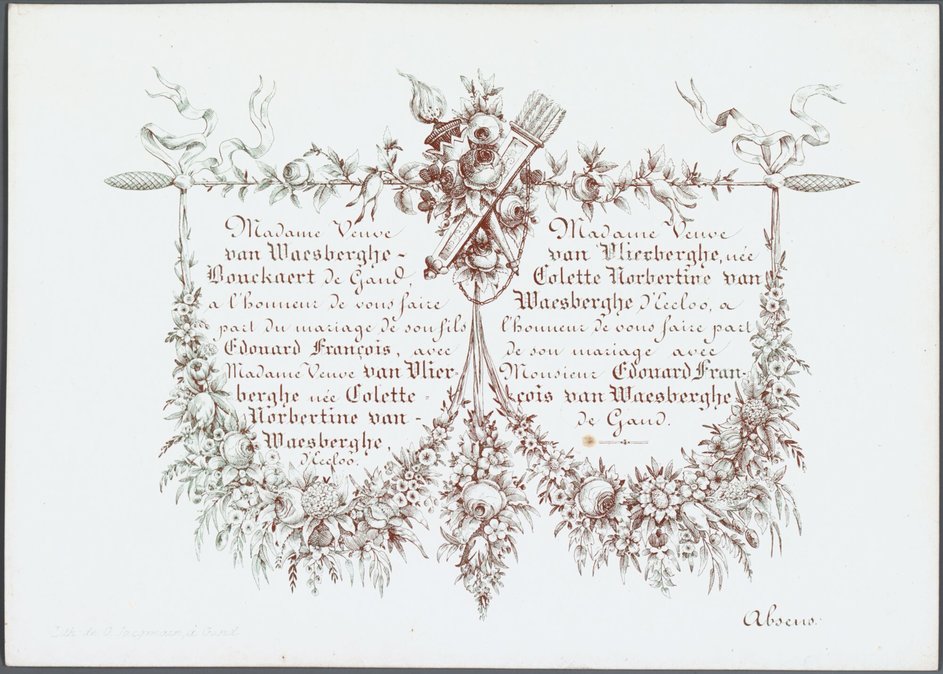 Madame Veuve
van Waesberghe -
Bouckaert de Gand,
a l'honneur de vous faire
part du mariage de son fils
Edouard François, avec
Madame Veuve van Vlier-
berghe née Colette -
Norbertine van -
Waesberghe
d'Eecloo.
Madame Veuve
van Vlierberghe, née
Colette Norbertine van
Waesberghe d'Eecloo, a
l'honneur de vous faire part
de son mariage avec
Monsieur Edouard Fran-
çois van Waesberghe
de Gand.
Absens.
Lith. de G. Jacqmain, à Gand